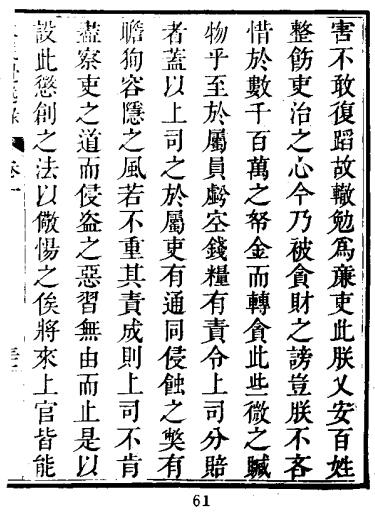 害不敢復蹈故轍勉為廉吏此朕乂安百姓
整飭吏治之心今乃被貪財之謗豈朕不吝
惜於數千百萬之帑金而轉貪此些微之贓
物乎至於屬員虧空錢糧有責令上司分賠
者蓋以上司之於屬吏有通同侵蝕之弊有
瞻狥容隱之風若不重其責成則上司不肯
盡察吏之道而侵盜之惡習無由而止是以
設此懲創之法以儆惕之俟將來上官皆能
卷一
61